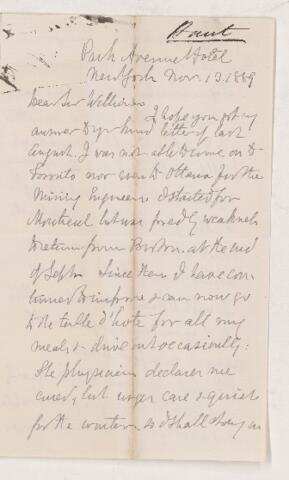 Hunt
Park Avenue Hotel
New York Nov. 13. 1889
Dear Sir William
I hope you got my
answer to yr kind letter of last
August. I was not able to come on to
Toronto nor even to Ottawa for the
Mining Engineers. I started for
Montreal but was forced by weakness
to return from Boston at the end
of Septr. Since then I have con
tinued to improve & can now go
to the table d'hote for all my
meals & drive out occasionally:
The physician declares me
cured, but urges care & quiet
for the winter. so I shall stay in